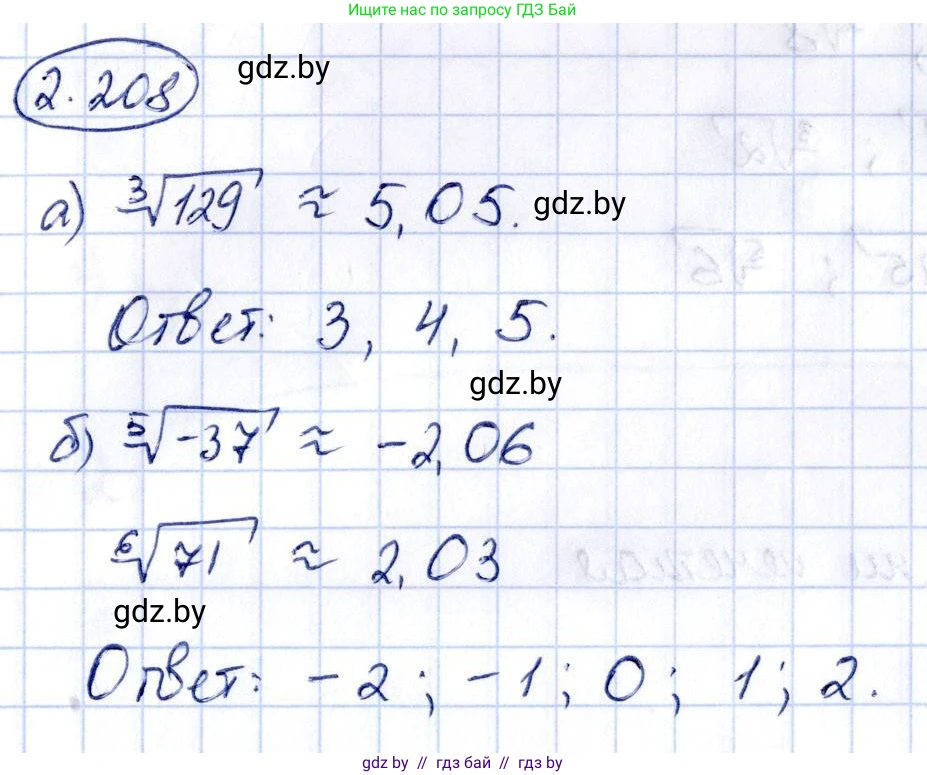 Ищите нас по запросу ГДЗ Бай
2.208 gdz.by
а) ∛129 ≈ 5,05. gdz.by
Ответ: 3, 4, 5.
gdz.by
б) ⁵√-37 ≈ -2,06
⁶√71 ≈ 2,03
gdz.by
Ответ: -2; -1; 0; 1; 2.
gdz.by // гдз бай // гдз by